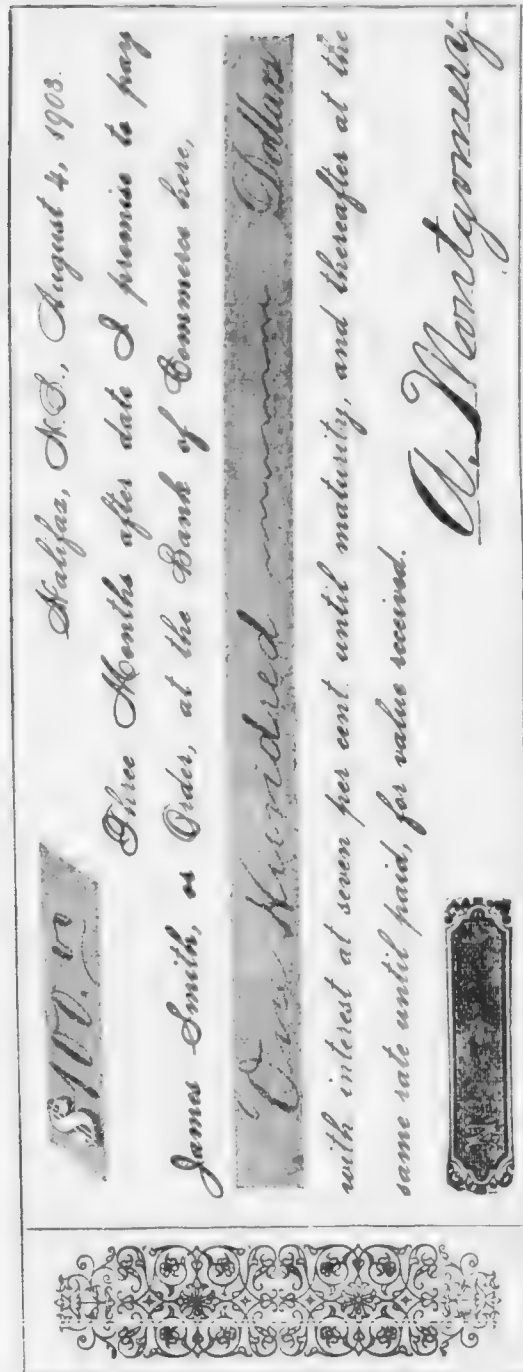 $100.00
Halifax, N.S., August 4, 1903.
Three Months after date I promise to pay
James Smith, or Order, at the Bank of Commerce here,
One Hundred Dollars
with interest at seven per cent. until maturity, and thereafter at the
same rate until paid, for value received.
A. Montgomery.